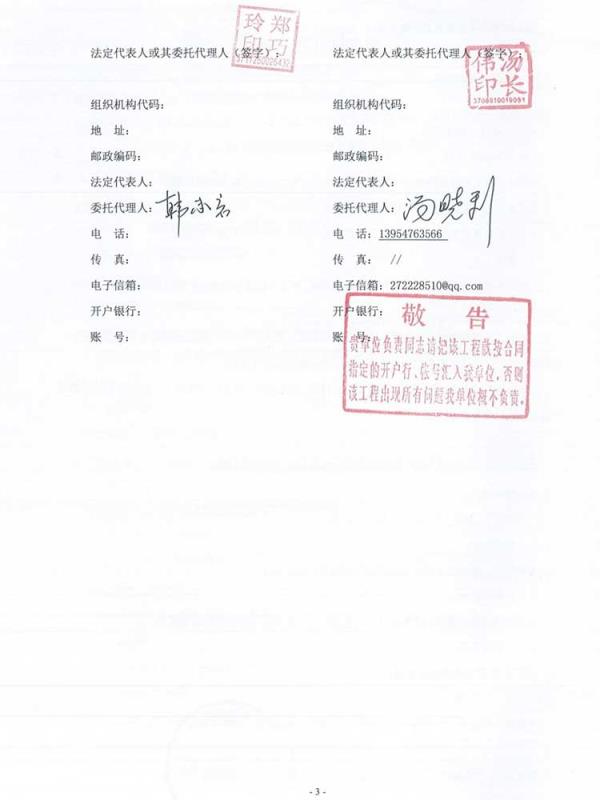 郑巧玲印
3717250026432
汤长伟印
3706910019091
法定代表人或其委托代理人（签字）：
组织机构代码：
地 址：
邮政编码：
法定代表人：
委托代理人：
电 话：
传 真：
电子信箱：
开户银行：
账 号：
法定代表人或其委托代理人（签字）：
组织机构代码：
地 址：
邮政编码：
法定代表人：
委托代理人：汤晓利
电 话：13954763566
传 真： //
电子信箱：272228510@qq.com
开户银行：
账 号：
敬 告
贵单位负责同志请把该工程款按合同
指定的开户行、帐号汇入我单位，否则
该工程出现所有问题我单位概不负责。
- 3 -